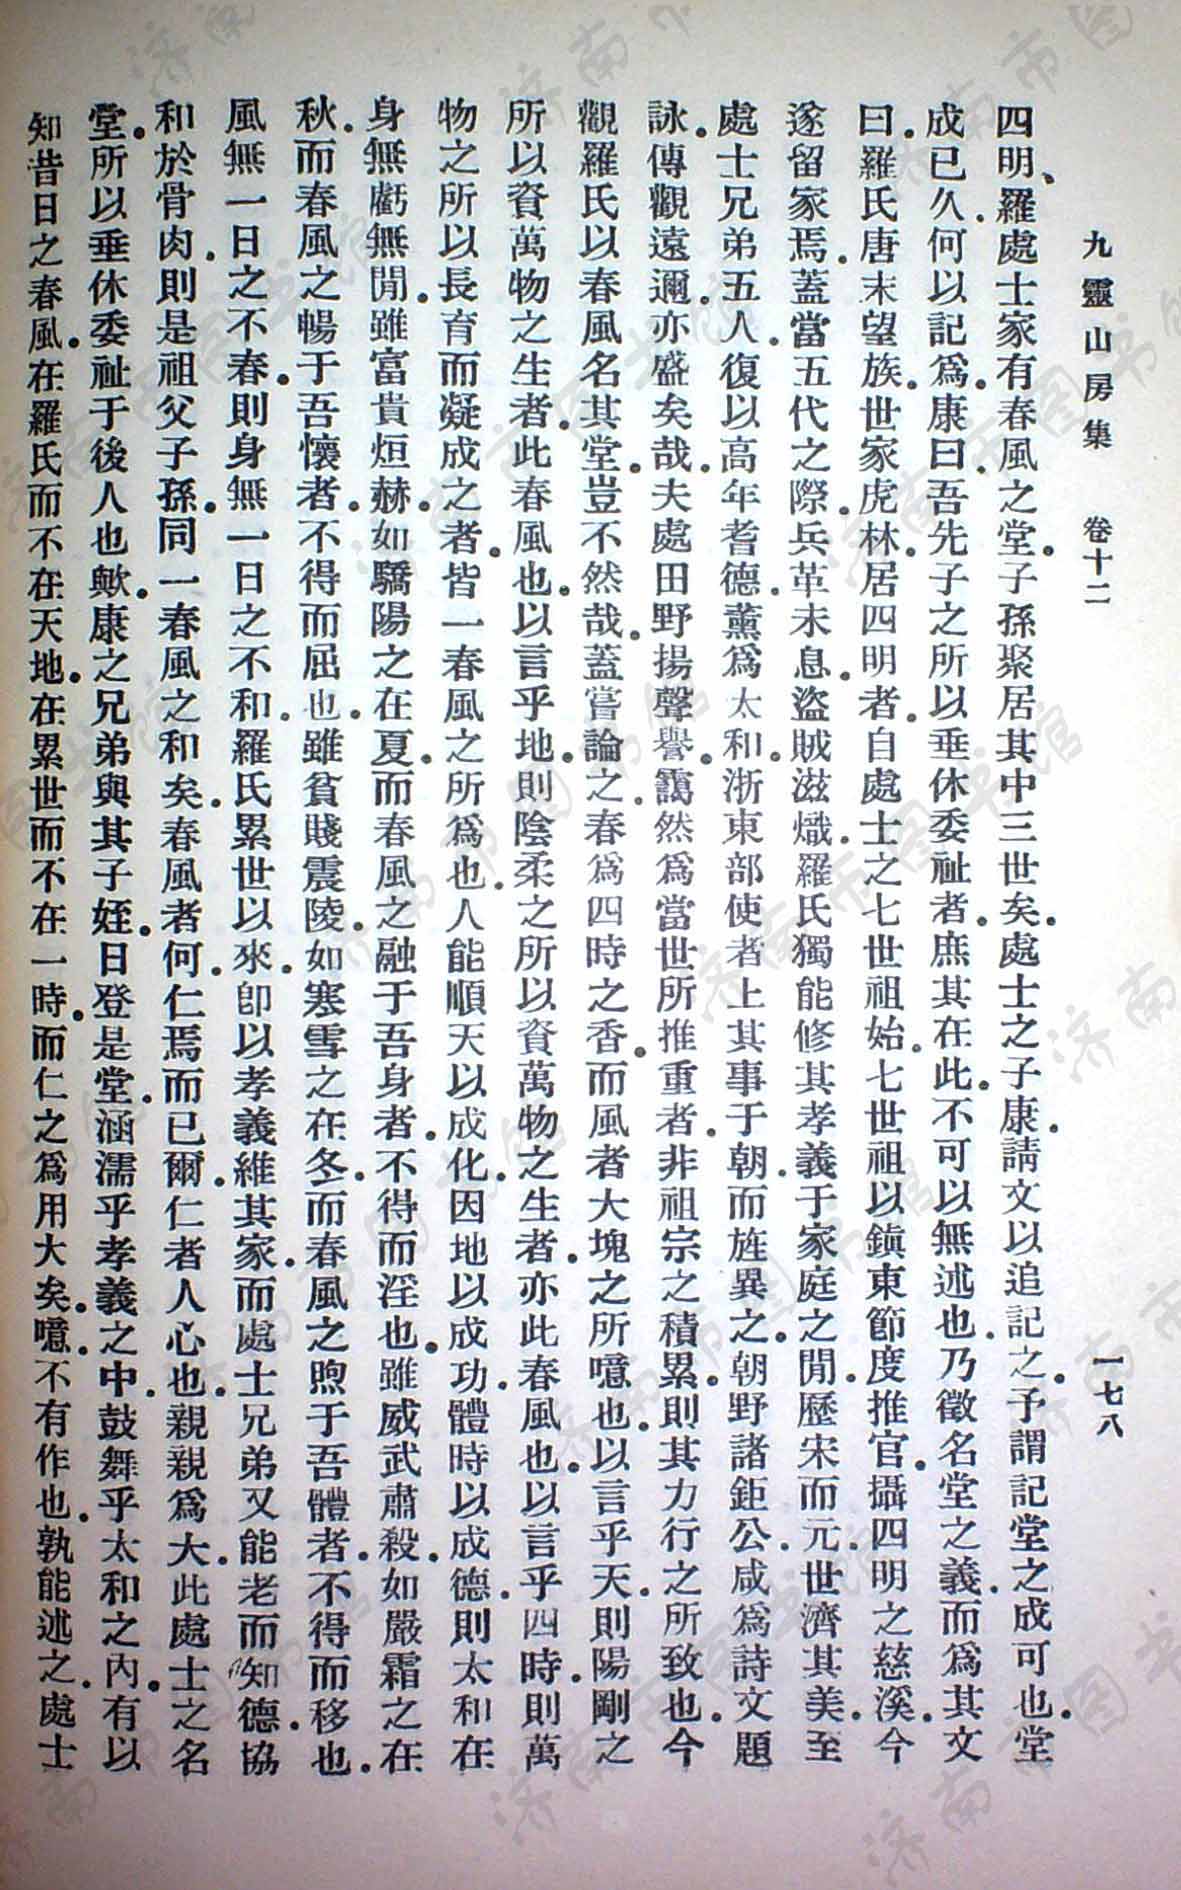 九靈山房集　卷十二　一七八
四明、羅處士家有春風之堂。子孫聚居其中三世矣。處士之子康。請文以追記之。予謂記堂之成可也。堂
成已久。何以記爲。康曰。吾先子之所以垂休委祉者。庶其在此。不可以無述也。乃徵名堂之義。而爲其文
曰。羅氏唐末望族。世家虎林。居四明者。自處士之七世祖始。七世祖以鎭東節度推官。攝四明之慈溪。今
遂留家焉。蓋當五代之際。兵革未息。盜賊滋熾。羅氏獨能修其孝義于家庭之閒。歷宋而元。世濟其美。至
處士兄弟五人。復以高年耆德。薰爲太和。浙東部使者上其事于朝。而旌異之。朝野諸鉅公。咸爲詩文題
詠。傳觀遠邇。亦盛矣哉。夫處田野揚聲譽。靄然爲當世所推重者。非祖宗之積累。則其力行之所致也。今
觀羅氏以春風名其堂。豈不然哉。蓋嘗論之。春爲四時之香。而風者大塊之所噫也。以言乎天。則陽剛之
所以資萬物之生者。此春風也。以言乎地。則陰柔之所以資萬物之生者。亦此春風也。以言乎四時。則萬
物之所以長育而凝成之者。皆一春風之所爲也。人能順天以成化。因地以成功。體時以成德。則太和在
身。無虧無閒。雖富貴烜赫。如驕陽之在夏。而春風之融于吾身者。不得而淫也。雖威武肅殺。如嚴霜之在
秋。而春風之暢于吾懷者。不得而屈也。雖貧賤震陵。如寒雪之在冬。而春風之煦于吾體者。不得而移也。
風無一日之不春。則身無一日之不和。羅氏累世以來。卽以孝義維其家。而處士兄弟又能老而知德。協
和於骨肉。則是祖父子孫。同一春風之和矣。春風者何。仁焉而已爾。仁者人心也。親親爲大。此處士之名
堂。所以垂休委祉于後人也歟。康之兄弟與其子姪。日登是堂。涵濡乎孝義之中。鼓舞乎太和之內。有以
知昔日之春風。在羅氏而不在天地。在累世而不在一時。而仁之爲用大矣。噫。不有作也。孰能述之。處士
济南市图书馆